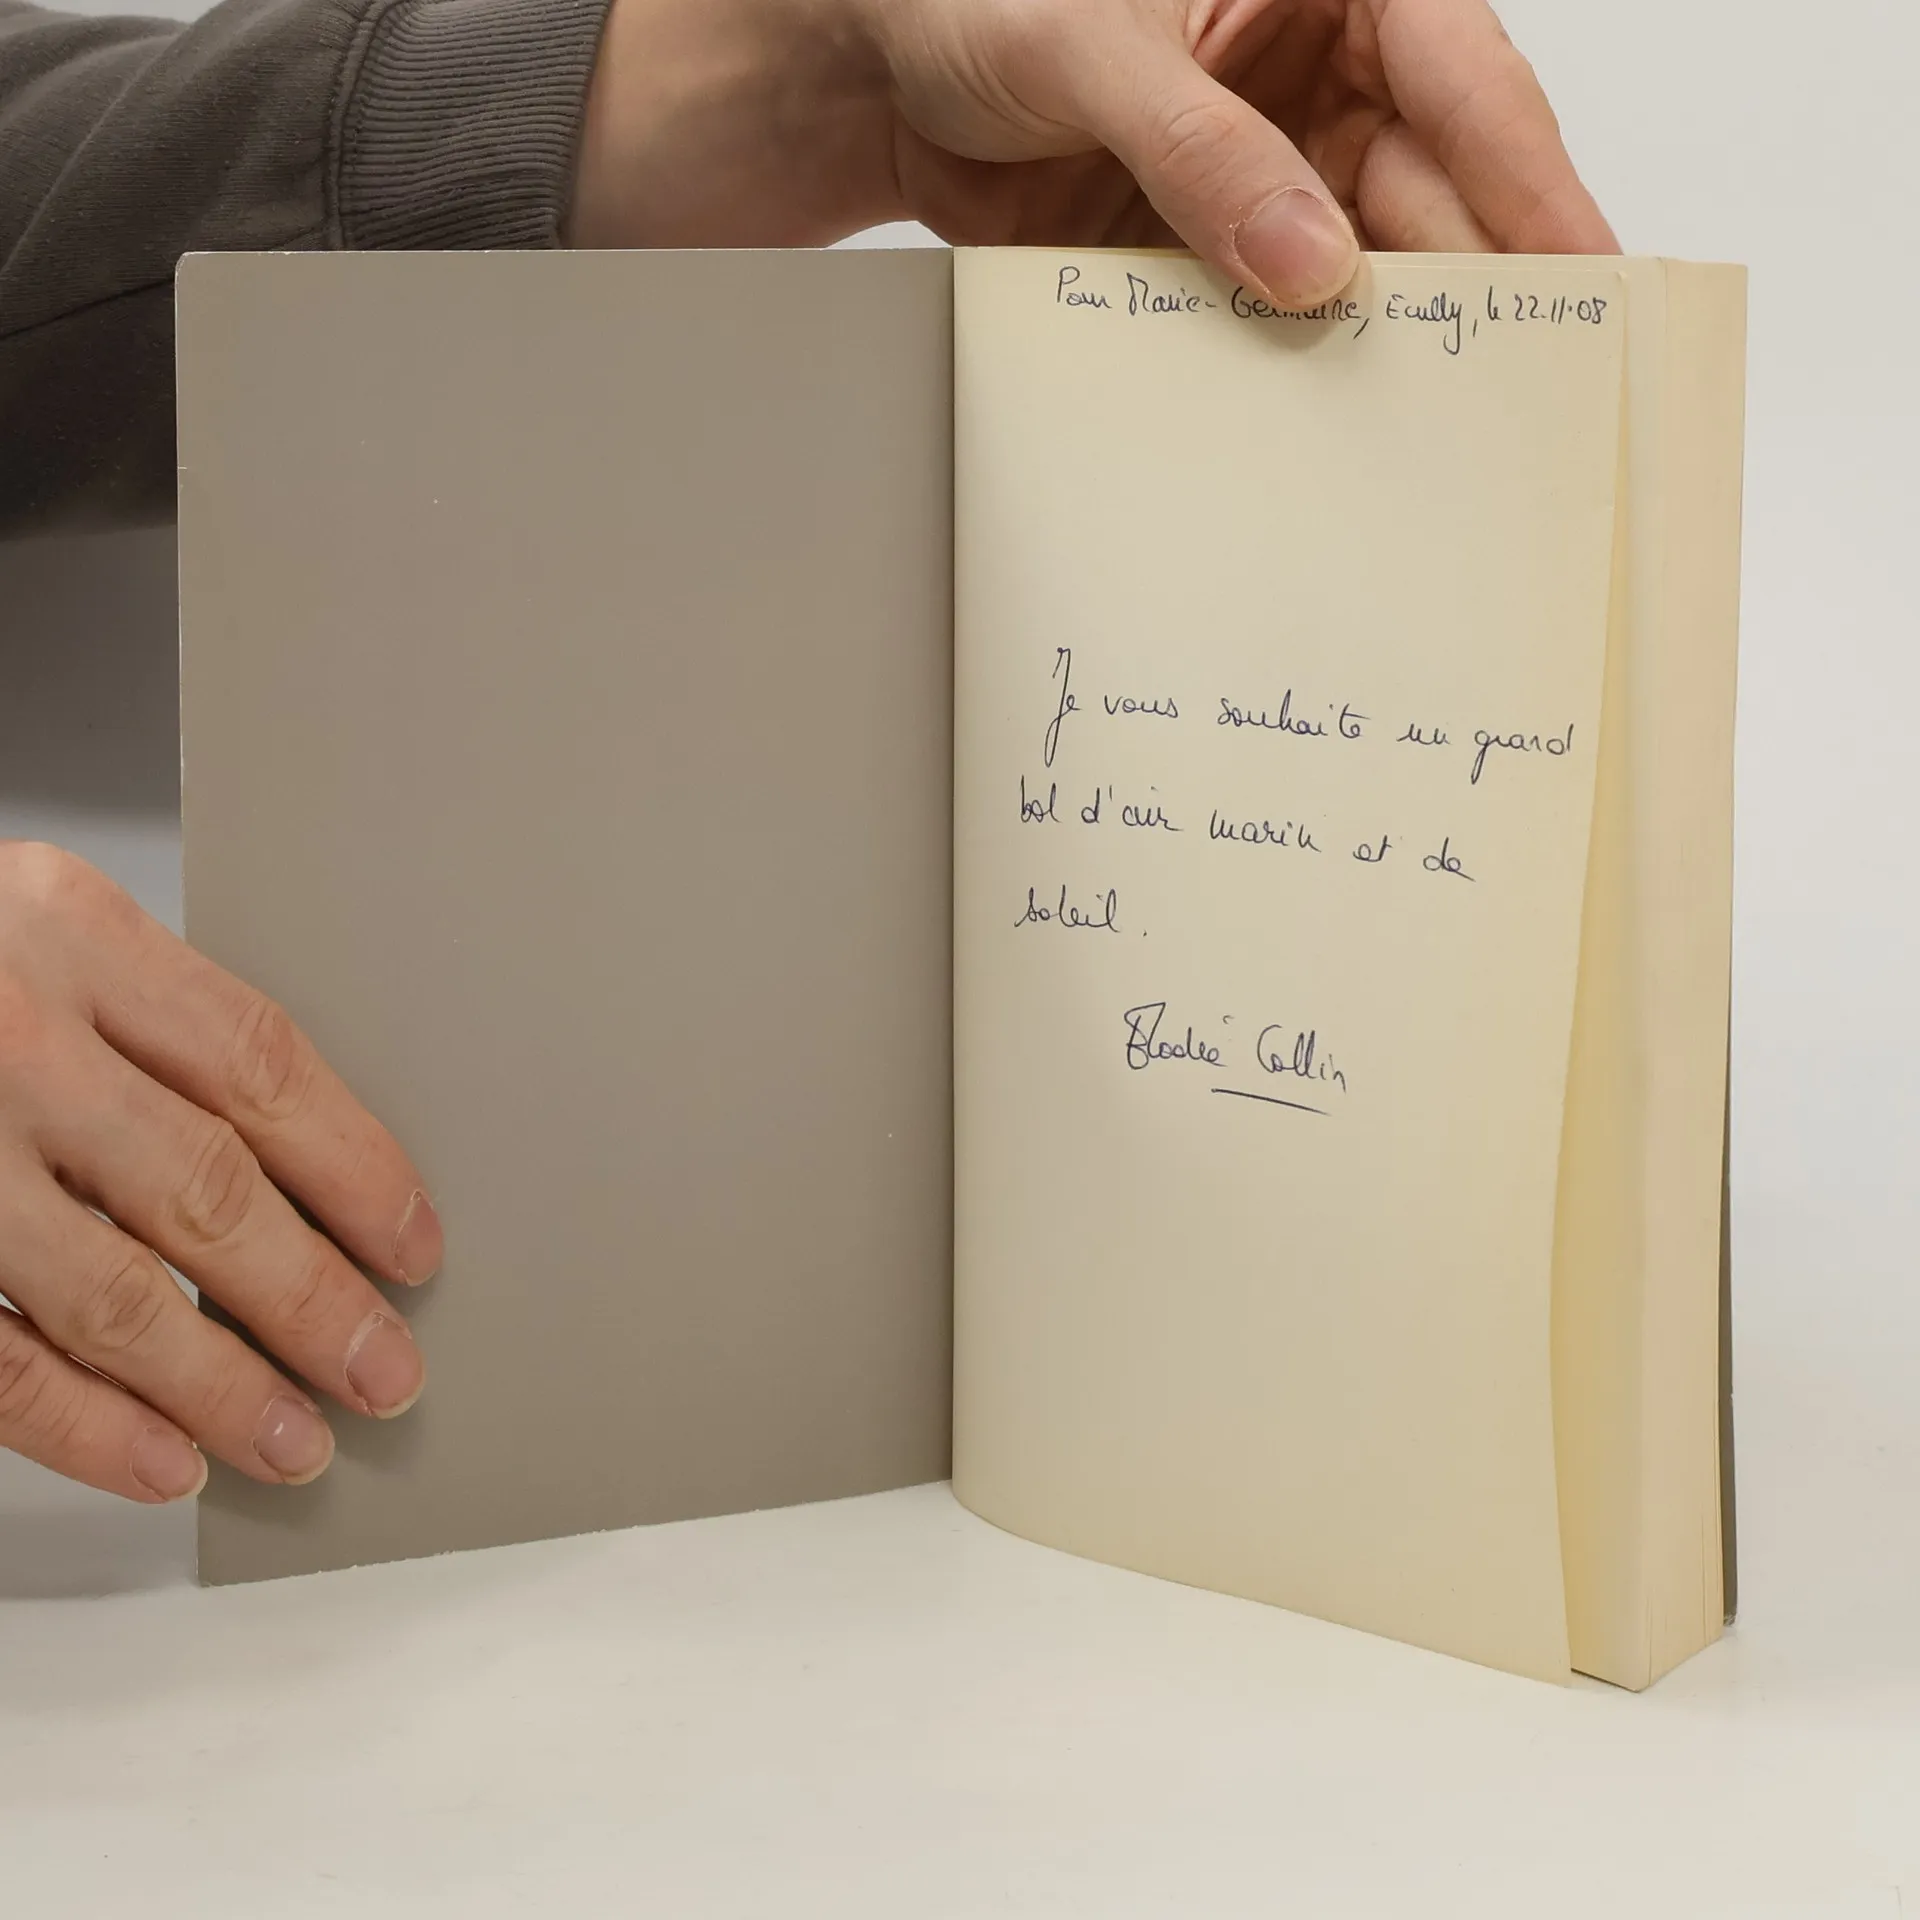 Pour Marie-Germaine, Ecully, le 22.11.08
Je vous souhaite un grand
bol d'air marin et de
soleil.
Elodie Collin